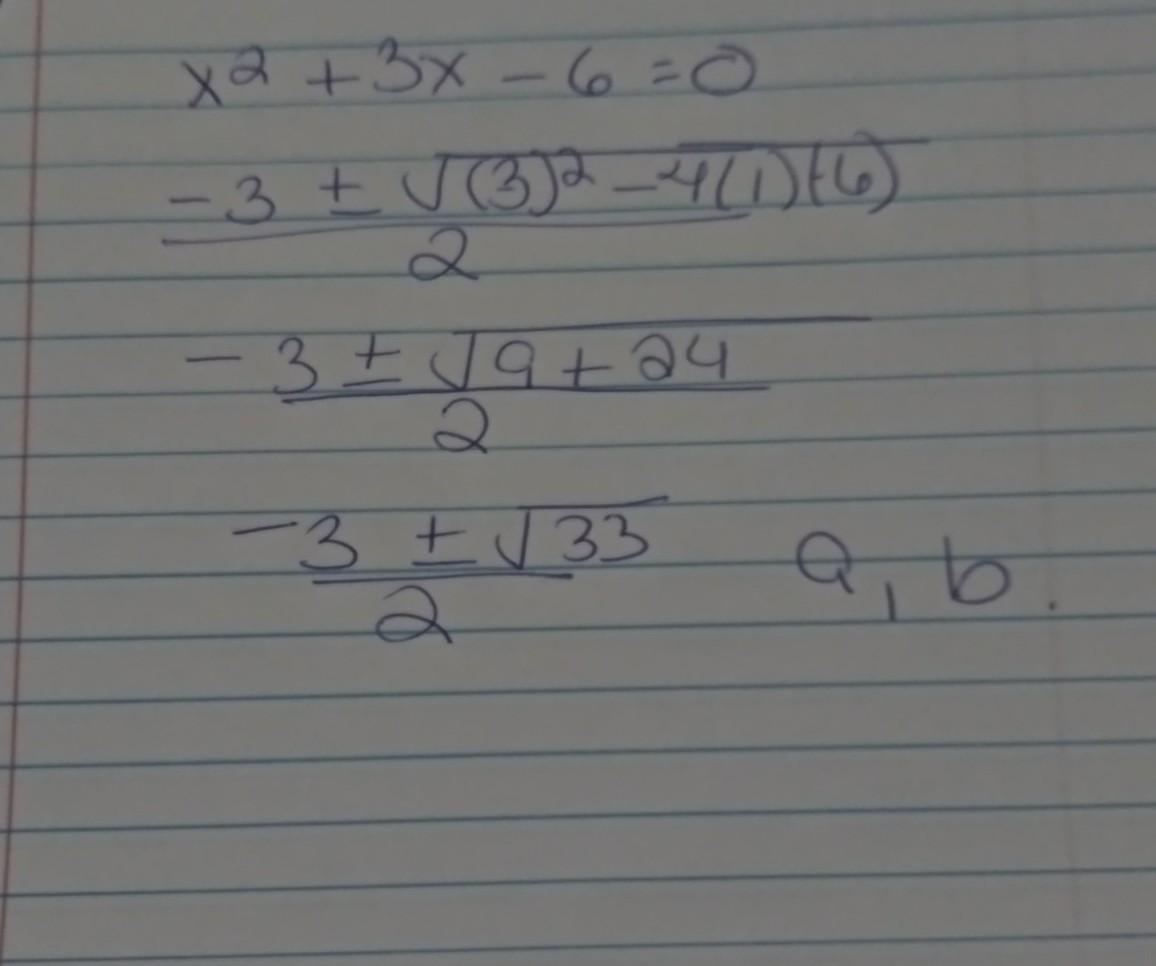 x² + 3x - 6 = 0
-3 ± √(3)² - 4(1)(-6)
2
-3 ± √9 + 24
2
-3 ± √33 a, b.
2